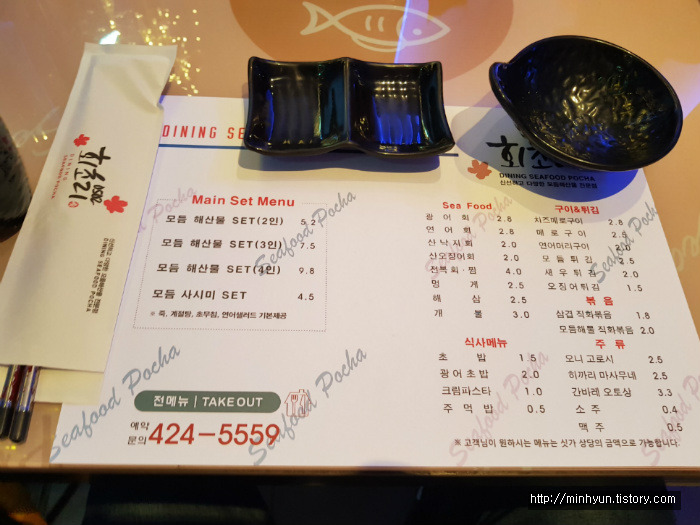 DINING SE
회소
DINING SEAFOOD POCHA
신선하고 다양한 모듬해산물 전문점
Main Set Menu
모듬 해산물 SET(2인) 5.2
모듬 해산물 SET(3인) 7.5
모듬 해산물 SET(4인) 9.8
모듬 사시미 SET 4.5
※ 죽, 계절탕, 초무침, 연어샐러드 기본제공
Sea Food
광어회 2.8
연어회 2.8
산낙지회 2.4
산오징어회
전복회·찜 4.0
멍게 2.5
해삼 2.5
개불 3.0
구이&튀김
치즈메로구이 2.8
메로구이 2.5
연어머리구이 2.0
모듬튀김 2.5
새우튀김 2.0
오징어튀김 1.5
볶음
삼겹 직화볶음 1.8
모듬해물 직화볶음 2.0
식사메뉴
초밥 1.5
광어초밥 2.0
크림파스타 1.0
주먹밥 0.5
주류
오니 고로시 2.5
히까리 마사무네 2.5
간바레 오토상 3.3
소주 0.4
맥주 0.5
※ 고객님이 원하시는 메뉴는 싯가 상당의 금액으로 가능합니다.
전메뉴 | TAKE OUT
예약
문의 424-5559
Seafood Pocha
Seafood Pocha
Seafood Pocha
Seafood Pocha
Seafood Pocha
Seafood Pocha
Seafood Pocha
회소리
DINING
SEAFOOD POCHA
신선하고 다양한 모듬해산물 전문점
DINING SEAFOOD POCHA
http://minhyun.tistory.com